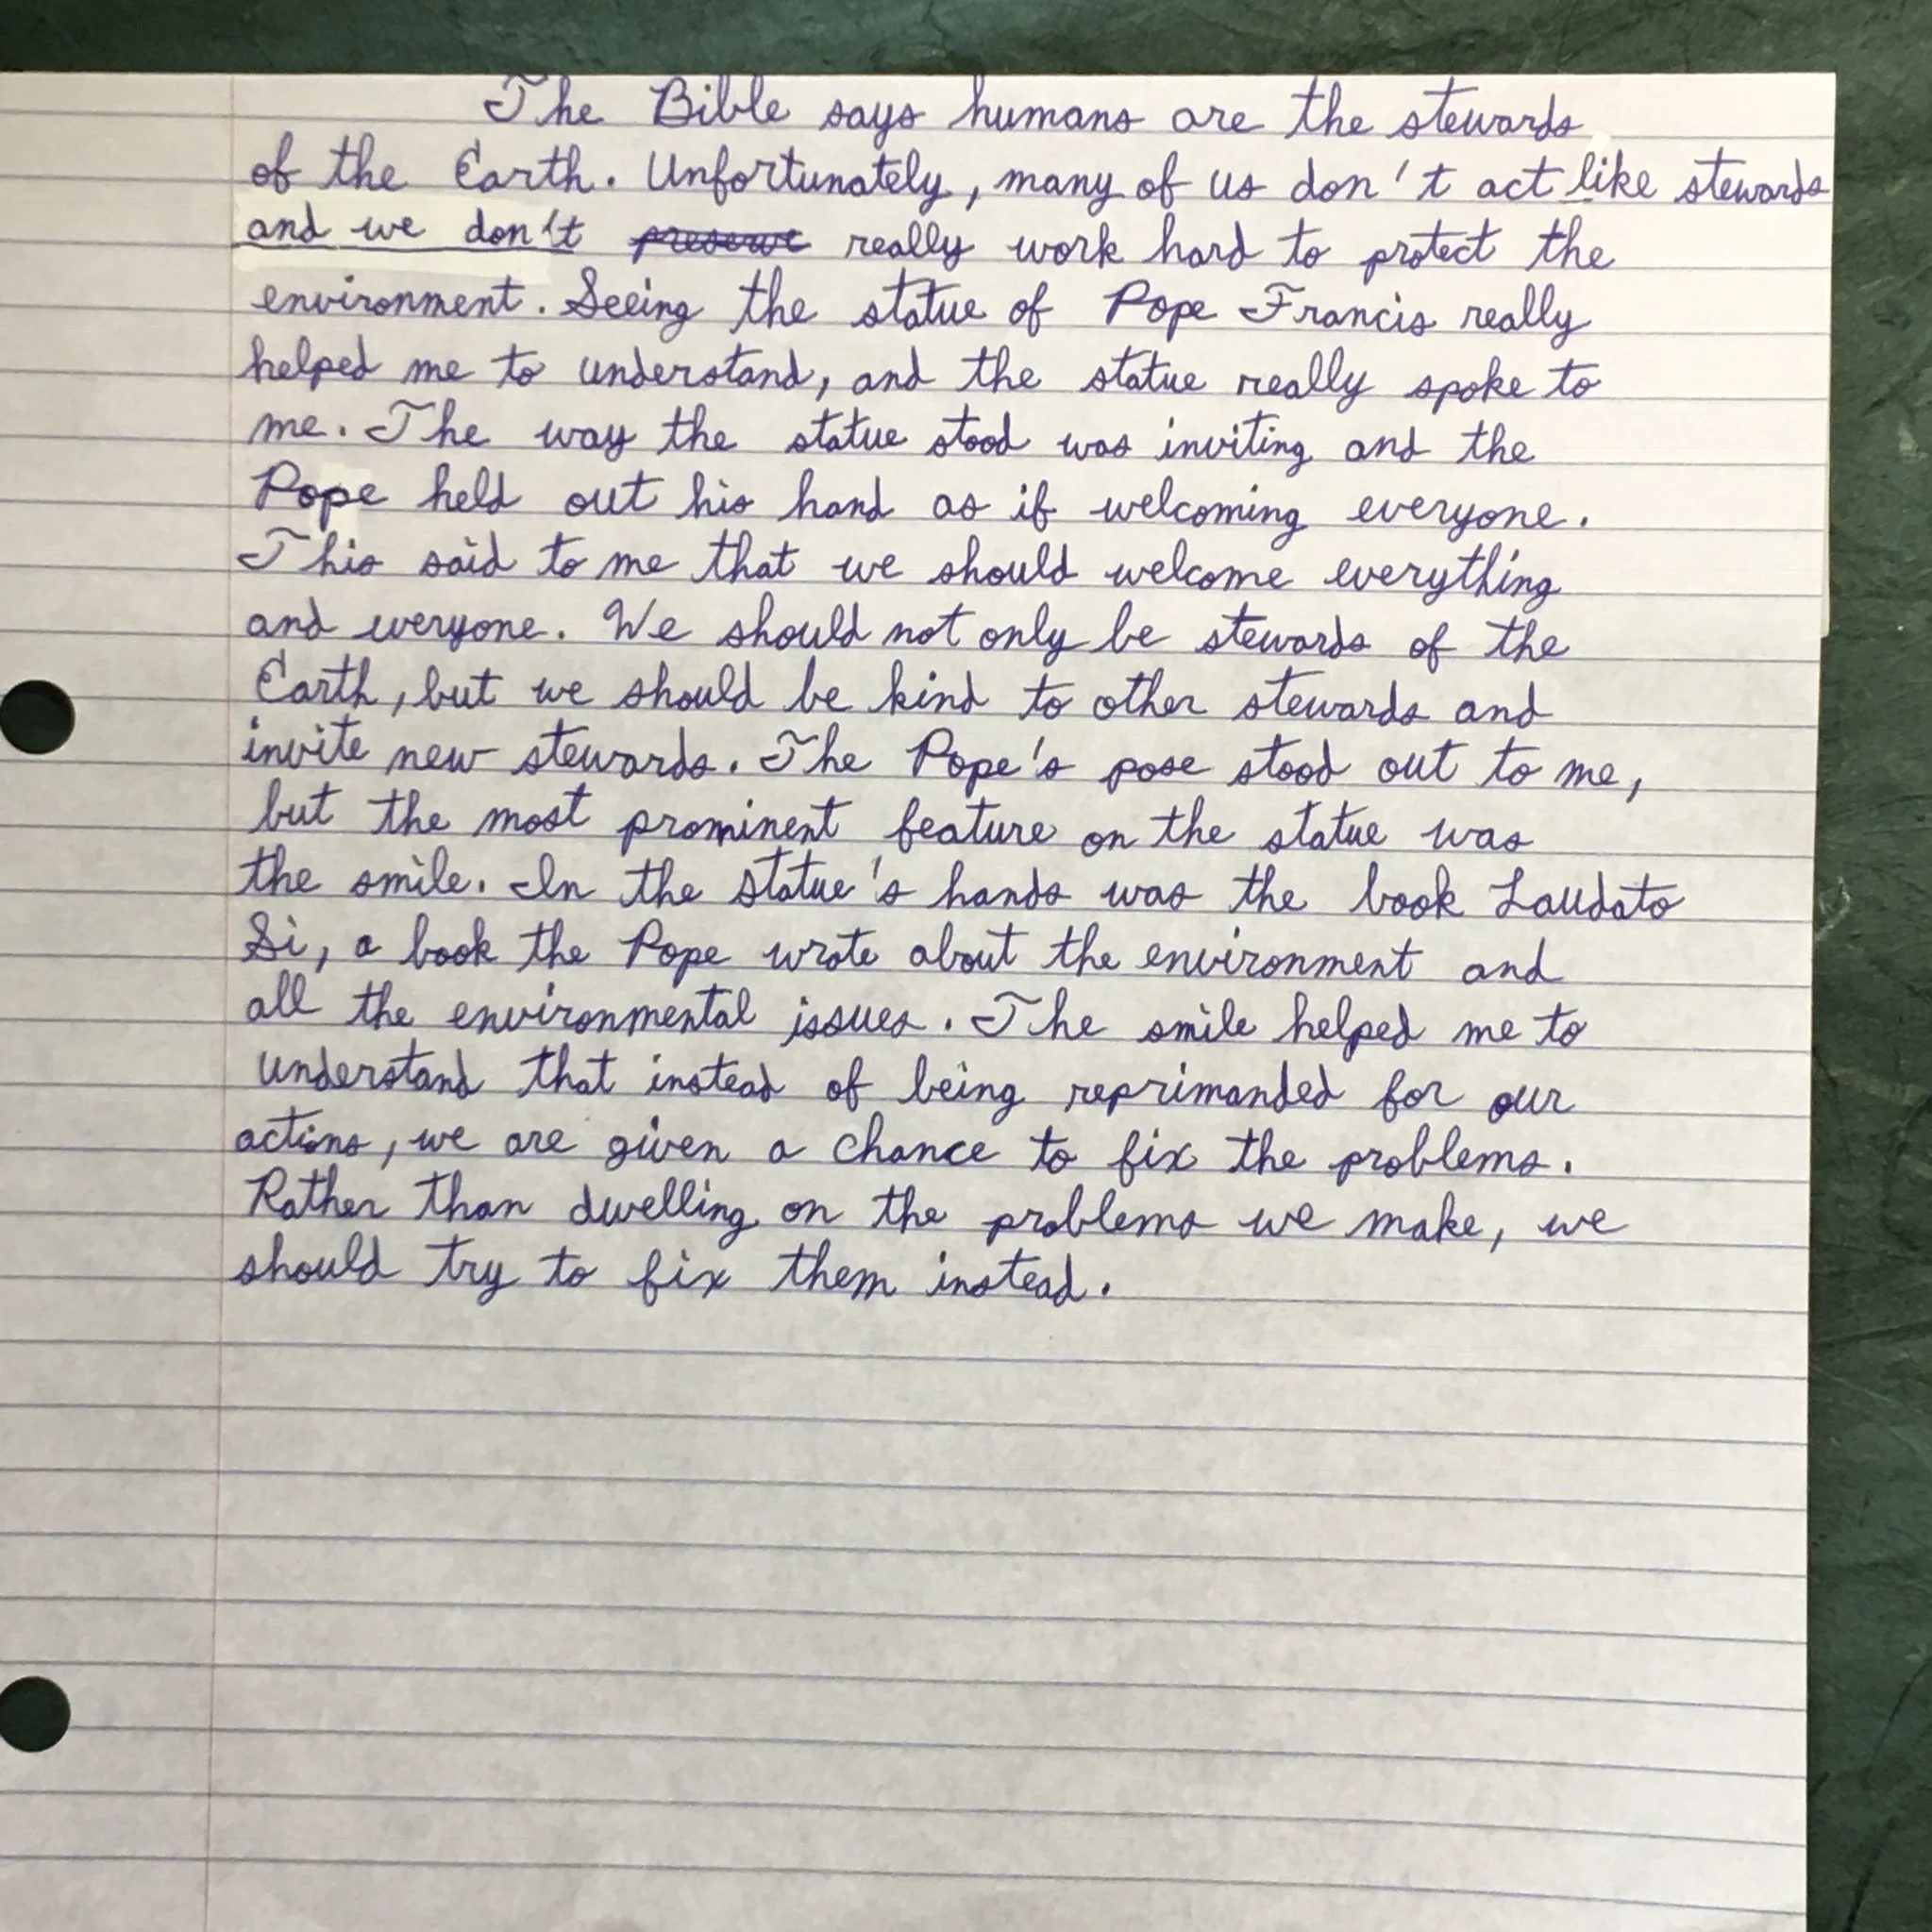 The Bible says humans are the stewards
of the Earth. Unfortunately, many of us don't act like stewards
and we don't preserve really work hard to protect the
environment. Seeing the statue of Pope Francis really
helped me to understand, and the statue really spoke to
me. The way the statue stood was inviting and the
Pope held out his hand as if welcoming everyone.
This said to me that we should welcome everything
and everyone. We should not only be stewards of the
Earth, but we should be kind to other stewards and
invite new stewards. The Pope's pose stood out to me,
but the most prominent feature on the statue was
the smile. In the statue's hands was the book Laudato
Si, a book the Pope wrote about the environment and
all the environmental issues. The smile helped me to
understand that instead of being reprimanded for our
actions, we are given a chance to fix the problems.
Rather than dwelling on the problems we make, we
should try to fix them instead.